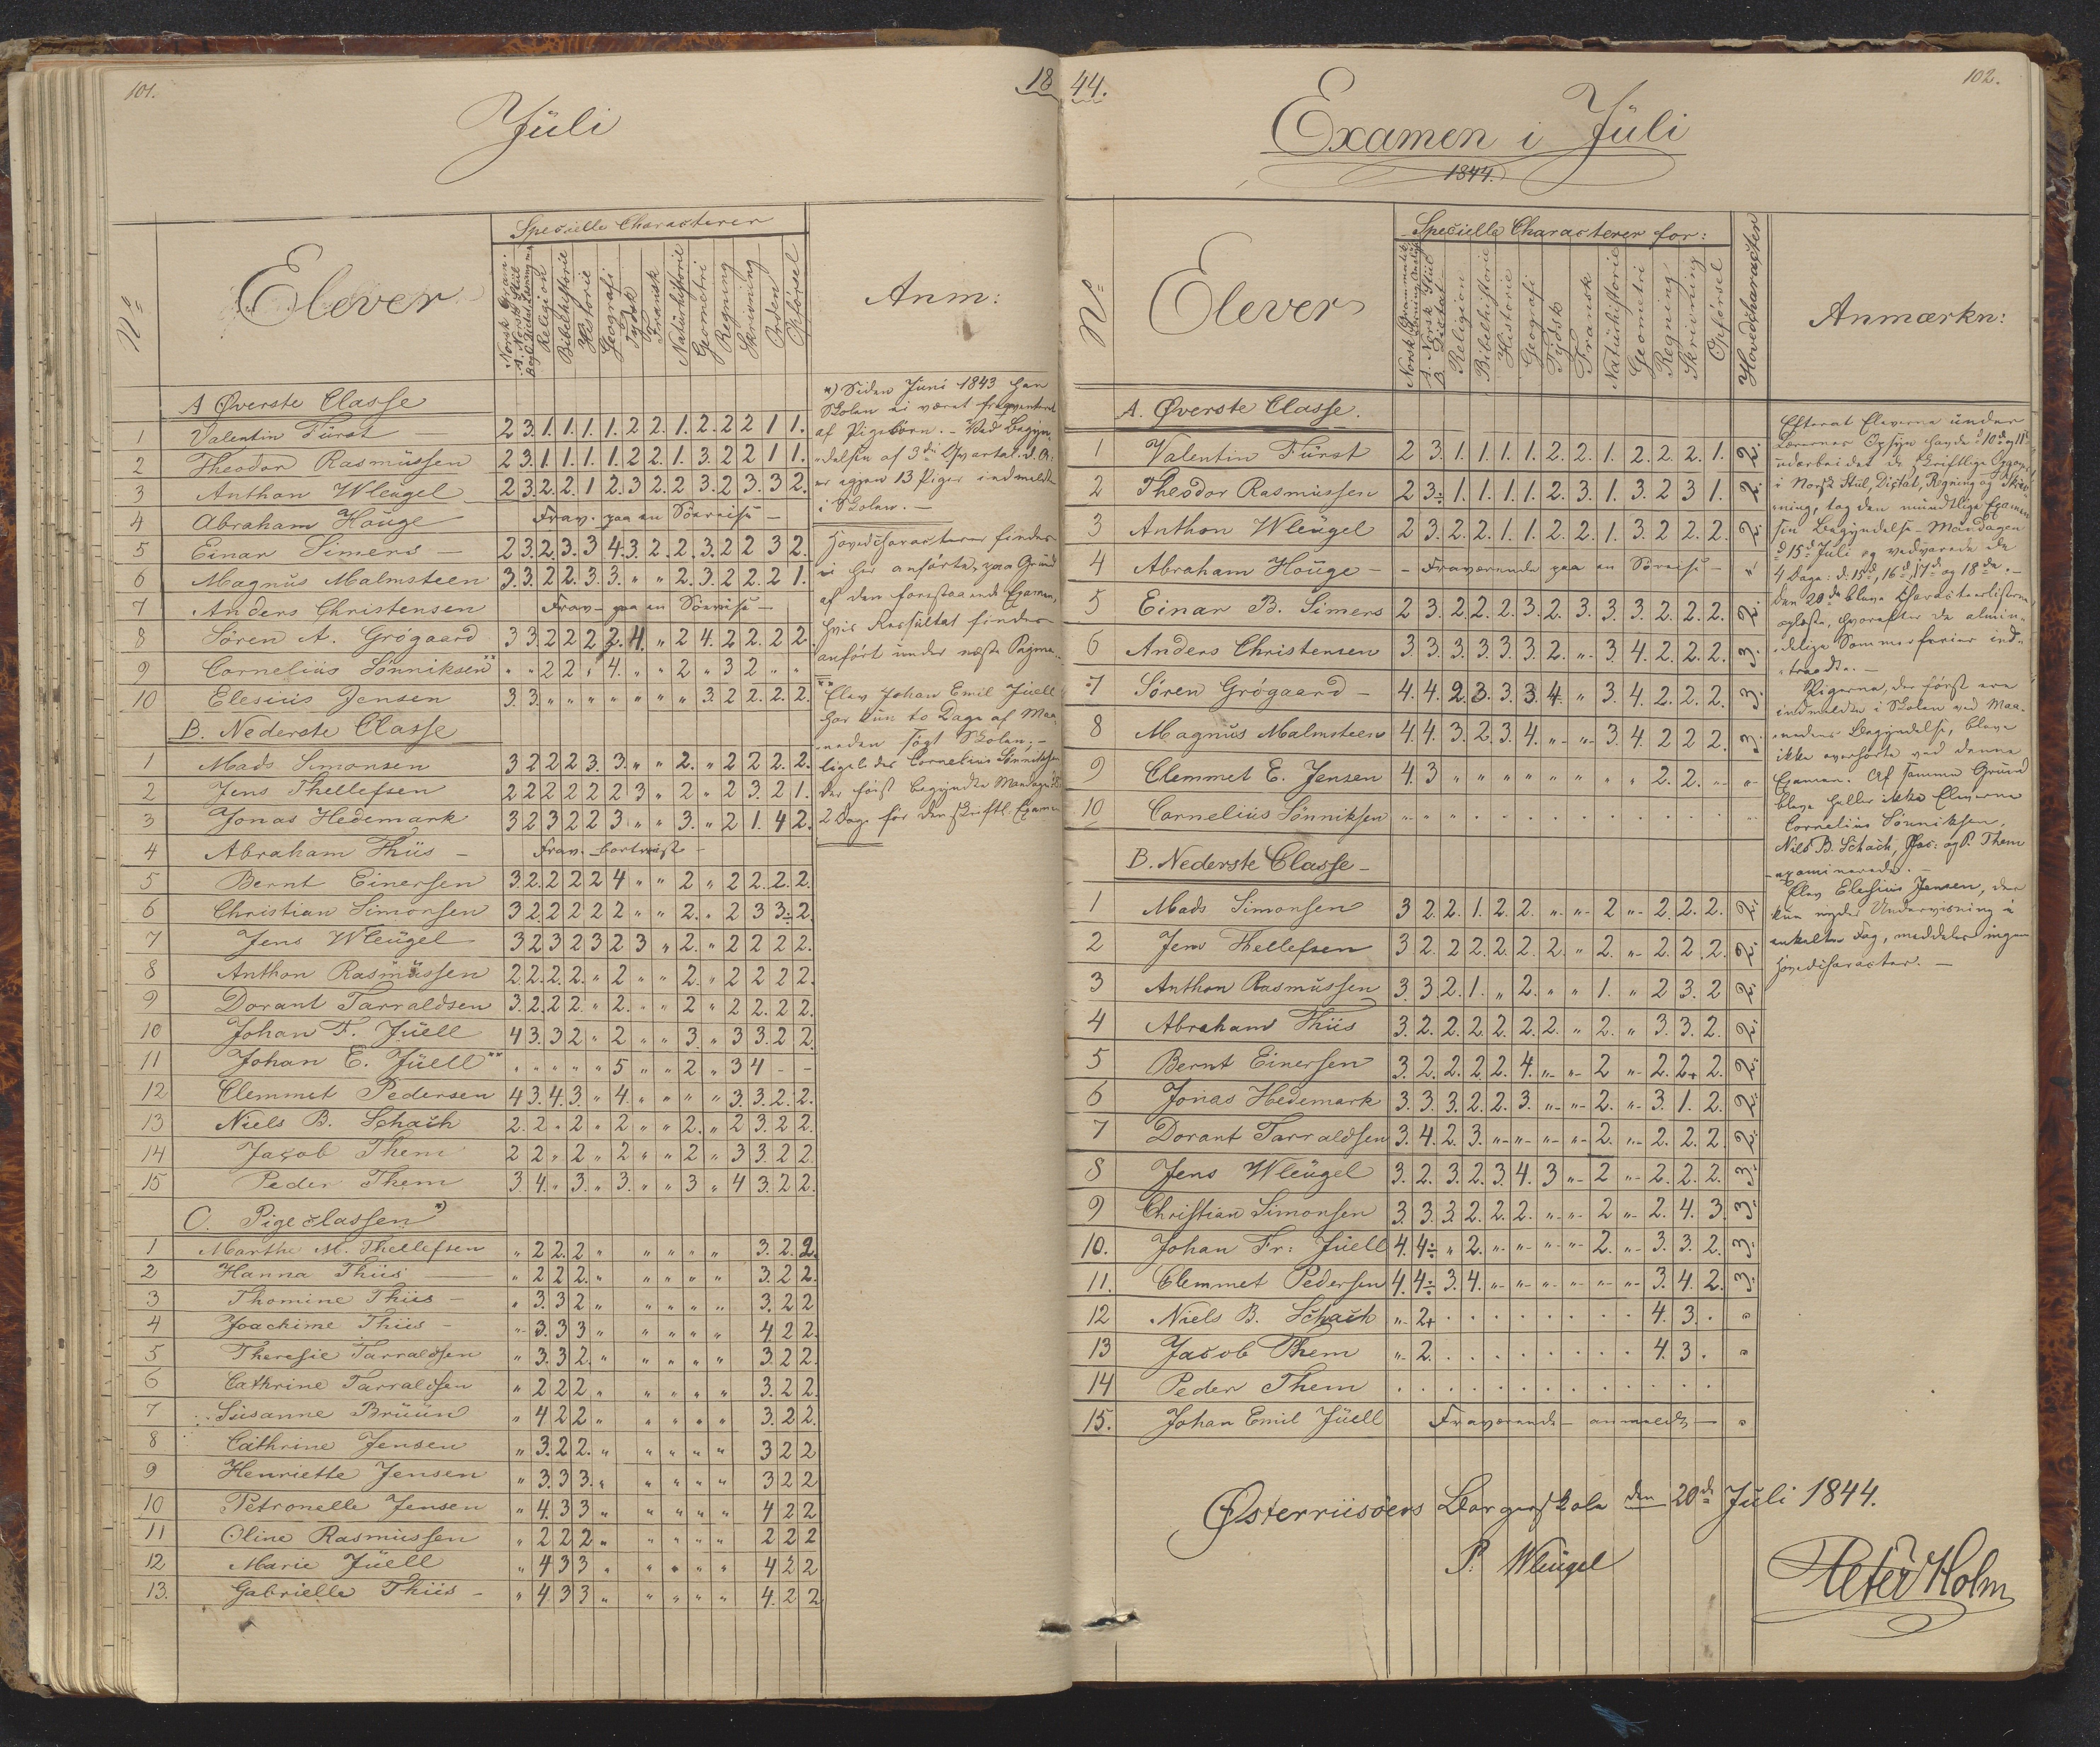 101.
18
Jüli
Specielle Characterer
No
Elever
Norsk Gram.
A. Norsk Stiil
Religion
Bibelhistorie
Historie
Geografi
Tydsk
Fransk
Natürhistorie
Geometri
Regning
Skrivning
Orden
Opförsel
Anm:
A Øverste Classe
1 Valentin Fürst 2 3. 1. 1. 1. 1. 2 2. 1. 2. 2 2 1 1.
2 Theodor Rasmüssen 2 3. 1. 1. 1. 1. 2 2. 1. 3. 2 2 1 1.
3 Anthon Wleügel 2 3. 2. 2. 1 2. 3 2. 2 3. 2 3. 3 2.
4 Abraham Houge Frav. paa en Söereise —
5 Einar Simers — 2 3. 2. 3. 3 4. 3. 2. 2. 3. 2 2 3 2.
6 Magnüs Malmsteen 3. 3. 2 2. 3. 3. " " 2. 3. 2 2. 2 1.
7 Anders Christensen Frav. paa en Söereise —
8 Sören A. Grögaard 3 3. 2 2 2 2. 4. " 2 4. 2 2. 2 2.
9 Cornelius Sönniksen ** " " 2 2 " 4. " " 2 " 3 2 " "
10 Elesiüs Jensen 3. 3. " " " " " " " 3. 2 2. 2. 2.
B. Nederste Classe
1 Mads Simonsen 3 2 2 2 3. 3. " " 2. " 2 2 2. 2.
2 Jens Thellefsen 2 2 2 2 2 2 3 " 2 " 2 3. 2 1.
3 Jonas Hedemark 3 2 3 2 2 3 " " 3. " 2 1. 4 2.
4 Abraham Thiis — Frav. bortreist —
5 Bernt Einersen 3. 2. 2 2 2 4 " " 2 " 2 2. 2. 2.
6 Christian Simonsen 3 2 2 2 2 2 " " 2. " 2 3 3÷ 2.
7 Jens Wleügel 3 2 3 2 3 2 3 " 2. " 2 2 2 2.
8 Anthon Rasmüssen 2. 2. 2. 2. " 2 " " 2. " 2 2 2 2.
9 Dorant Tarraldsen 3. 2. 2 2. " 2. " " 2 " 2 2. 2 2.
10 Johan F. Jüell 4 3. 3 2 " 2 " " 3. " 3 3. 2 2.
11 Johan E. Jüell ** " " " " " 5 " " 2 " 3 4 - -
12 Clemmet Pedersen 4 3. 4. 3. " 4. " " " " 3. 3. 2. 2.
13 Niels B. Schach 2. 2 " 2 " 2 " " 2. " 2 3. 2 2.
14 Jacob Them 2 2 " 2 " 2 " " 2 " 3 3. 2 2.
15 Peder Them 3. 4. " 3. " 3. " " 3 " 4 3. 2 2.
C. Pigeclassen *)
1 Marthe M. Thellefsen " 2 2. 2 " " " " " 3. 2. 2.
2 Hanna Thiis " 2 2 2. " " " " " 3. 2 2.
3 Thomine Thiis — " 3. 3 2 " " " " " 3. 2 2
4 Joachime Thiis — " 3. 3 3 " " " " " 4 2 2.
5 Theresie Tarraldsen " 3. 3 2. " " " " " 3. 2 2.
6 Cathrine Tarraldsen " 2 2 2 " " " " " 3. 2 2.
7 Susanne Brüün " 4 2 2 " " " " " 3. 2 2.
8 Cathrine Jensen " 3. 2 2. " " " " " 3 2 2
9 Henriette Jensen " 3. 3 3. " " " " " 3 2 2
10 Petronelle Jensen " 4. 3 3 " " " " " 4 2 2
11 Oline Rasmüssen " 2 2 2 " " " " " 2 2 2
12 Marie Jüell " 4 3 3 " " " " " 4 2 2
13. Gabrielle Thiis — " 4 3 3 " " " " " 4. 2 2
*) Siden Juni 1843 har
Skolen ei været freqventeret
af Pigebörn. — Ved Begyn-
delsen af 3die Qvartal d. A.
er igjen 13 Piger indmeldte
i Skolen. —
Hovedcharacterer findes
ei her anförte, paa Grund
af den forestaaende Examen,
hvis Resultat findes
anfört under næste Pagina.
** Elev Johan Emil Jüell
har kun to Dage af Maa-
neden sögt Skolen; —
ligeledes Cornelius Sönniksen
der först begyndte Mandagen
2 Dage för den skriftl. Examen
44.
102.
Examen i Jüli
1844.
Specielle Characterer for:
No
Elever
Norsk Grammatik
A. Norsk Stiil
B. Dictat
Religion
Bibelhistorie
Historie
Geografi
Tydsk
Fransk
Natürhistorie
Geometri
Regning
Skrivning
Opförsel
Hovedcharacter
Anmærkn:
A. Øverste Classe.
1 Valentin Fürst 2 3. 1. 1. 1. 1. 2. 2. 1. 2. 2. 2. 1. 2.
2 Theodor Rasmüssen 2 3÷ 1. 1. 1. 1. 2. 3. 1. 3. 2 3 1. 2.
3 Anthon Wleügel 2 3. 2. 2. 1. 1. 2. 2. 1. 3. 2. 2. 2. 2.
4 Abraham Houge — — Fraværende paa en Söreise — "
5 Einar B. Simers 2 3. 2. 2. 2. 3. 2. 3. 3. 3. 2. 2. 2. 2.
6 Anders Christensen 3 3. 3. 3. 3. 3. 2. " 3. 4. 2. 2. 2. 3.
7 Sören Grögaard — 4. 4. 2. 3. 3. 3. 4. " 3. 4. 2. 2. 2. 3.
8 Magnüs Malmsteen 4. 4. 3. 2. 3. 4. " " 3. 4. 2 2 2. 3.
9 Clemmet E. Jensen 4. 3 " " " " " " " " 2. 2. " "
10 Cornelius Sönniksen
B. Nederste Classe —
1 Mads Simonsen 3 2. 2. 1. 2. 2. " " 2 " 2. 2. 2. 2.
2 Jens Thellefsen 3 2. 2 2. 2. 2. 2. " 2. " 2. 2. 2. 2.
3 Anthon Rasmüssen 3. 3. 2. 1. " 2. " " 1. " 2 3. 2 2.
4 Abraham Thiis 3. 2. 2. 2. 2. 2. 2. " 2. " 3. 3. 2. 2.
5 Bernt Einersen 3. 2. 2. 2. 2. 4. " " 2 " 2. 2+ 2. 2.
6 Jonas Hedemark 3. 3. 3. 2. 2. 3. " " 2. " 3. 1. 2. 2.
7 Dorant Tarraldsen 3. 4. 2. 3. " " " " 2. " 2. 2. 2. 2.
8 Jens Wleügel 3. 2. 3. 2. 3. 4. 3 " 2 " 2. 2. 2. 3.
9 Christian Simonsen 3. 3. 3. 2. 2. 2. " " 2 " 2. 4. 3. 3.
10. Johan Fr: Jüell 4. 4÷ " 2. " " " " 2. " 3. 3. 2. 3.
11. Clemmet Pedersen 4. 4÷ 3. 4. " " " " " " 3. 4. 2. 3.
12 Niels B. Schach " 2+ . . . . . . . . 4. 3. . "
13 Jacob Them " 2. . . . . . . . . 4. 3 . "
14 Peder Them
15. Johan Emil Jüell Fraværende — anmeldt — "
Efterat Eleverne under
Lærernes Opsyn havde d. 10de og 11te
udarbeidet de skriftlige Opgaver
i Norsk Stiil, Dictat, Regning og Skriv-
ning, tog den mundtlige Examen
sin Begyndelse Mandagen
d 15d Juli og vedvarede de
4 Dage: d. 15d, 16d, 17d og 18de. —
Den 20de bleve Characteerlisterne
oplæste, hvorefter de almin-
delige Sommerferier ind-
traadte. —
Pigerne, der först ere
indmeldte i Skolen ved Maa-
nedens Begyndelse, bleve
ikke overhörte ved denne
Examen. Af samme Grund
bleve heller ikke Eleverne
Cornelius Sönniksen,
Niels B. Schach, Jac: og P. Them
examinerede. —
Elev Elesius Jensen, der
kun nyder Underviisning i
enkelte Fag, meddeles ingen
Hovedcharacter. —
Østerriisöers Borgerskole den 20de Juli 1844.
P. Wleügel
Peter Holm